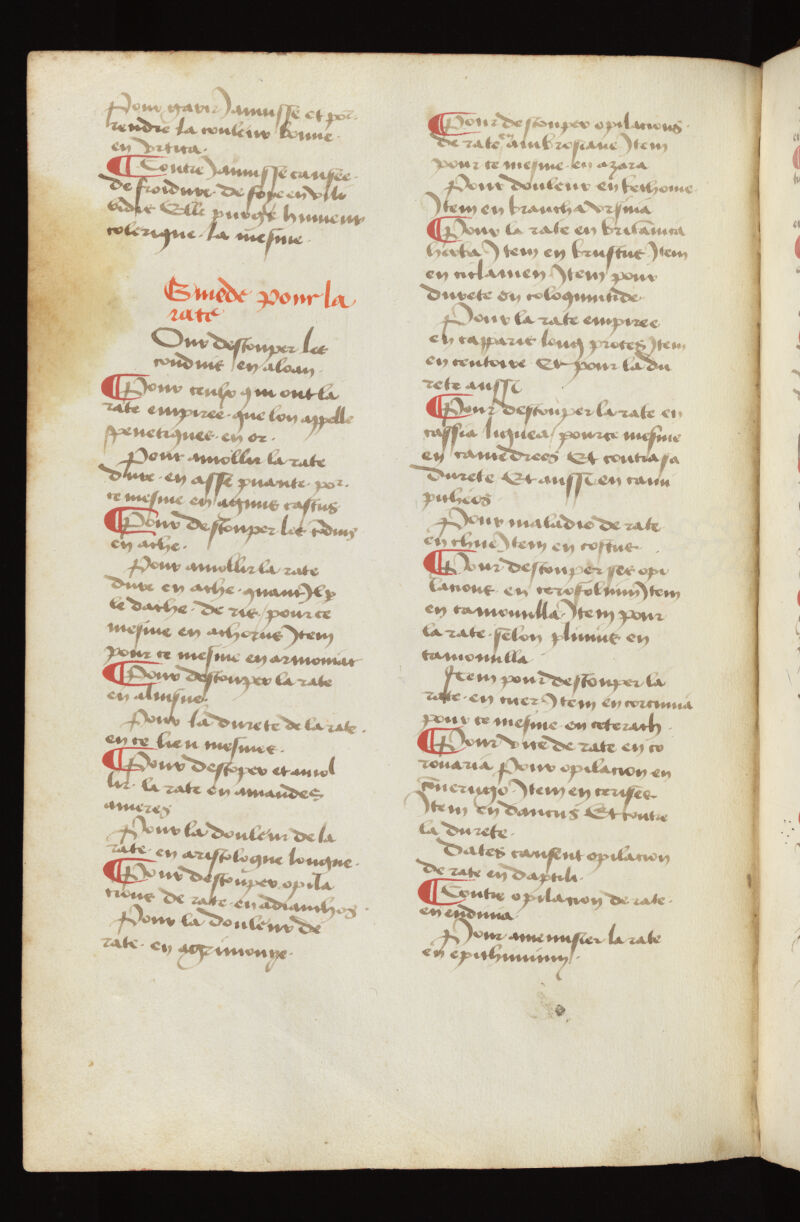 Pour garir Jaunisse et por.
rendre la couleur bonne.
en Vrtica.
¶ Contre Jaunisse causée.
de froidure. de foye en viti
vidis Elle purge humeur
colerique. la mesme.
Remede pour la
rate
Our destouper les
conduis en aloan.
¶ Pour ceulx qui ont la
rate empiree. que lon appelle
spenetiques. en or.
Pour amollir la rate
dure. en asse puante. por.
ce mesme en agnus castus
¶ Pour destouper les codius
en ache.
Pour amollir la rate
dure en ache. quant Il y
le dache. de ris / pour ce
mesme en achorus Item
pour ce mesme en armoniac
¶ Pour destouper la rate
en aluisne.
Pour la durete de la rate.
en ce lieu mesmes.
¶ Pour destoper et amol
lir. la rate en amandes
ameres
Pour la douleur de la
rate. en aristologue longue.
¶ Pour destouper opila
cions de rate. en adianthos.
Pour la douleur de
rate. en agrimonye.
¶ Pour destouper opilacions.
de rate en ambrosiane Item
pour ce mesme. en azara
Pour douleur en bethonie.
Item en brancha Vrsina
¶ Pour la rate en britanica
herba Item en bruscus Item
en ciclamen Item pour
durete en coloquintide.
Pour la rate empiree
en capparis long proces Item
en centoire Et pour la du
rete aussi
¶ Pour destouper la rate en
cassia lignea / pour ce mesme
en camedreos Et contra sa
durete Et aussi en cam
pitheos
Pour maladie de rate
en chue Item en costus.
¶ Pour destouper ses opi
lacions. en cerofolium Item
en camomilla. Item pour
la rate. selon plinius en
camomilla
Item pour destouper la
rate. en cuer Item en corcuma
pour ce mesme. en ceterach.
¶ Pour vne de rate en co
rouaria Pour opilacion en
Item en cerises.
Item en daucus Et contre
la durete.
Dates causent opilacion
de rate en daptili.
¶ Contre opilacion de rate.
en endiuia
Pour amenuisier la rate
en epithimum.